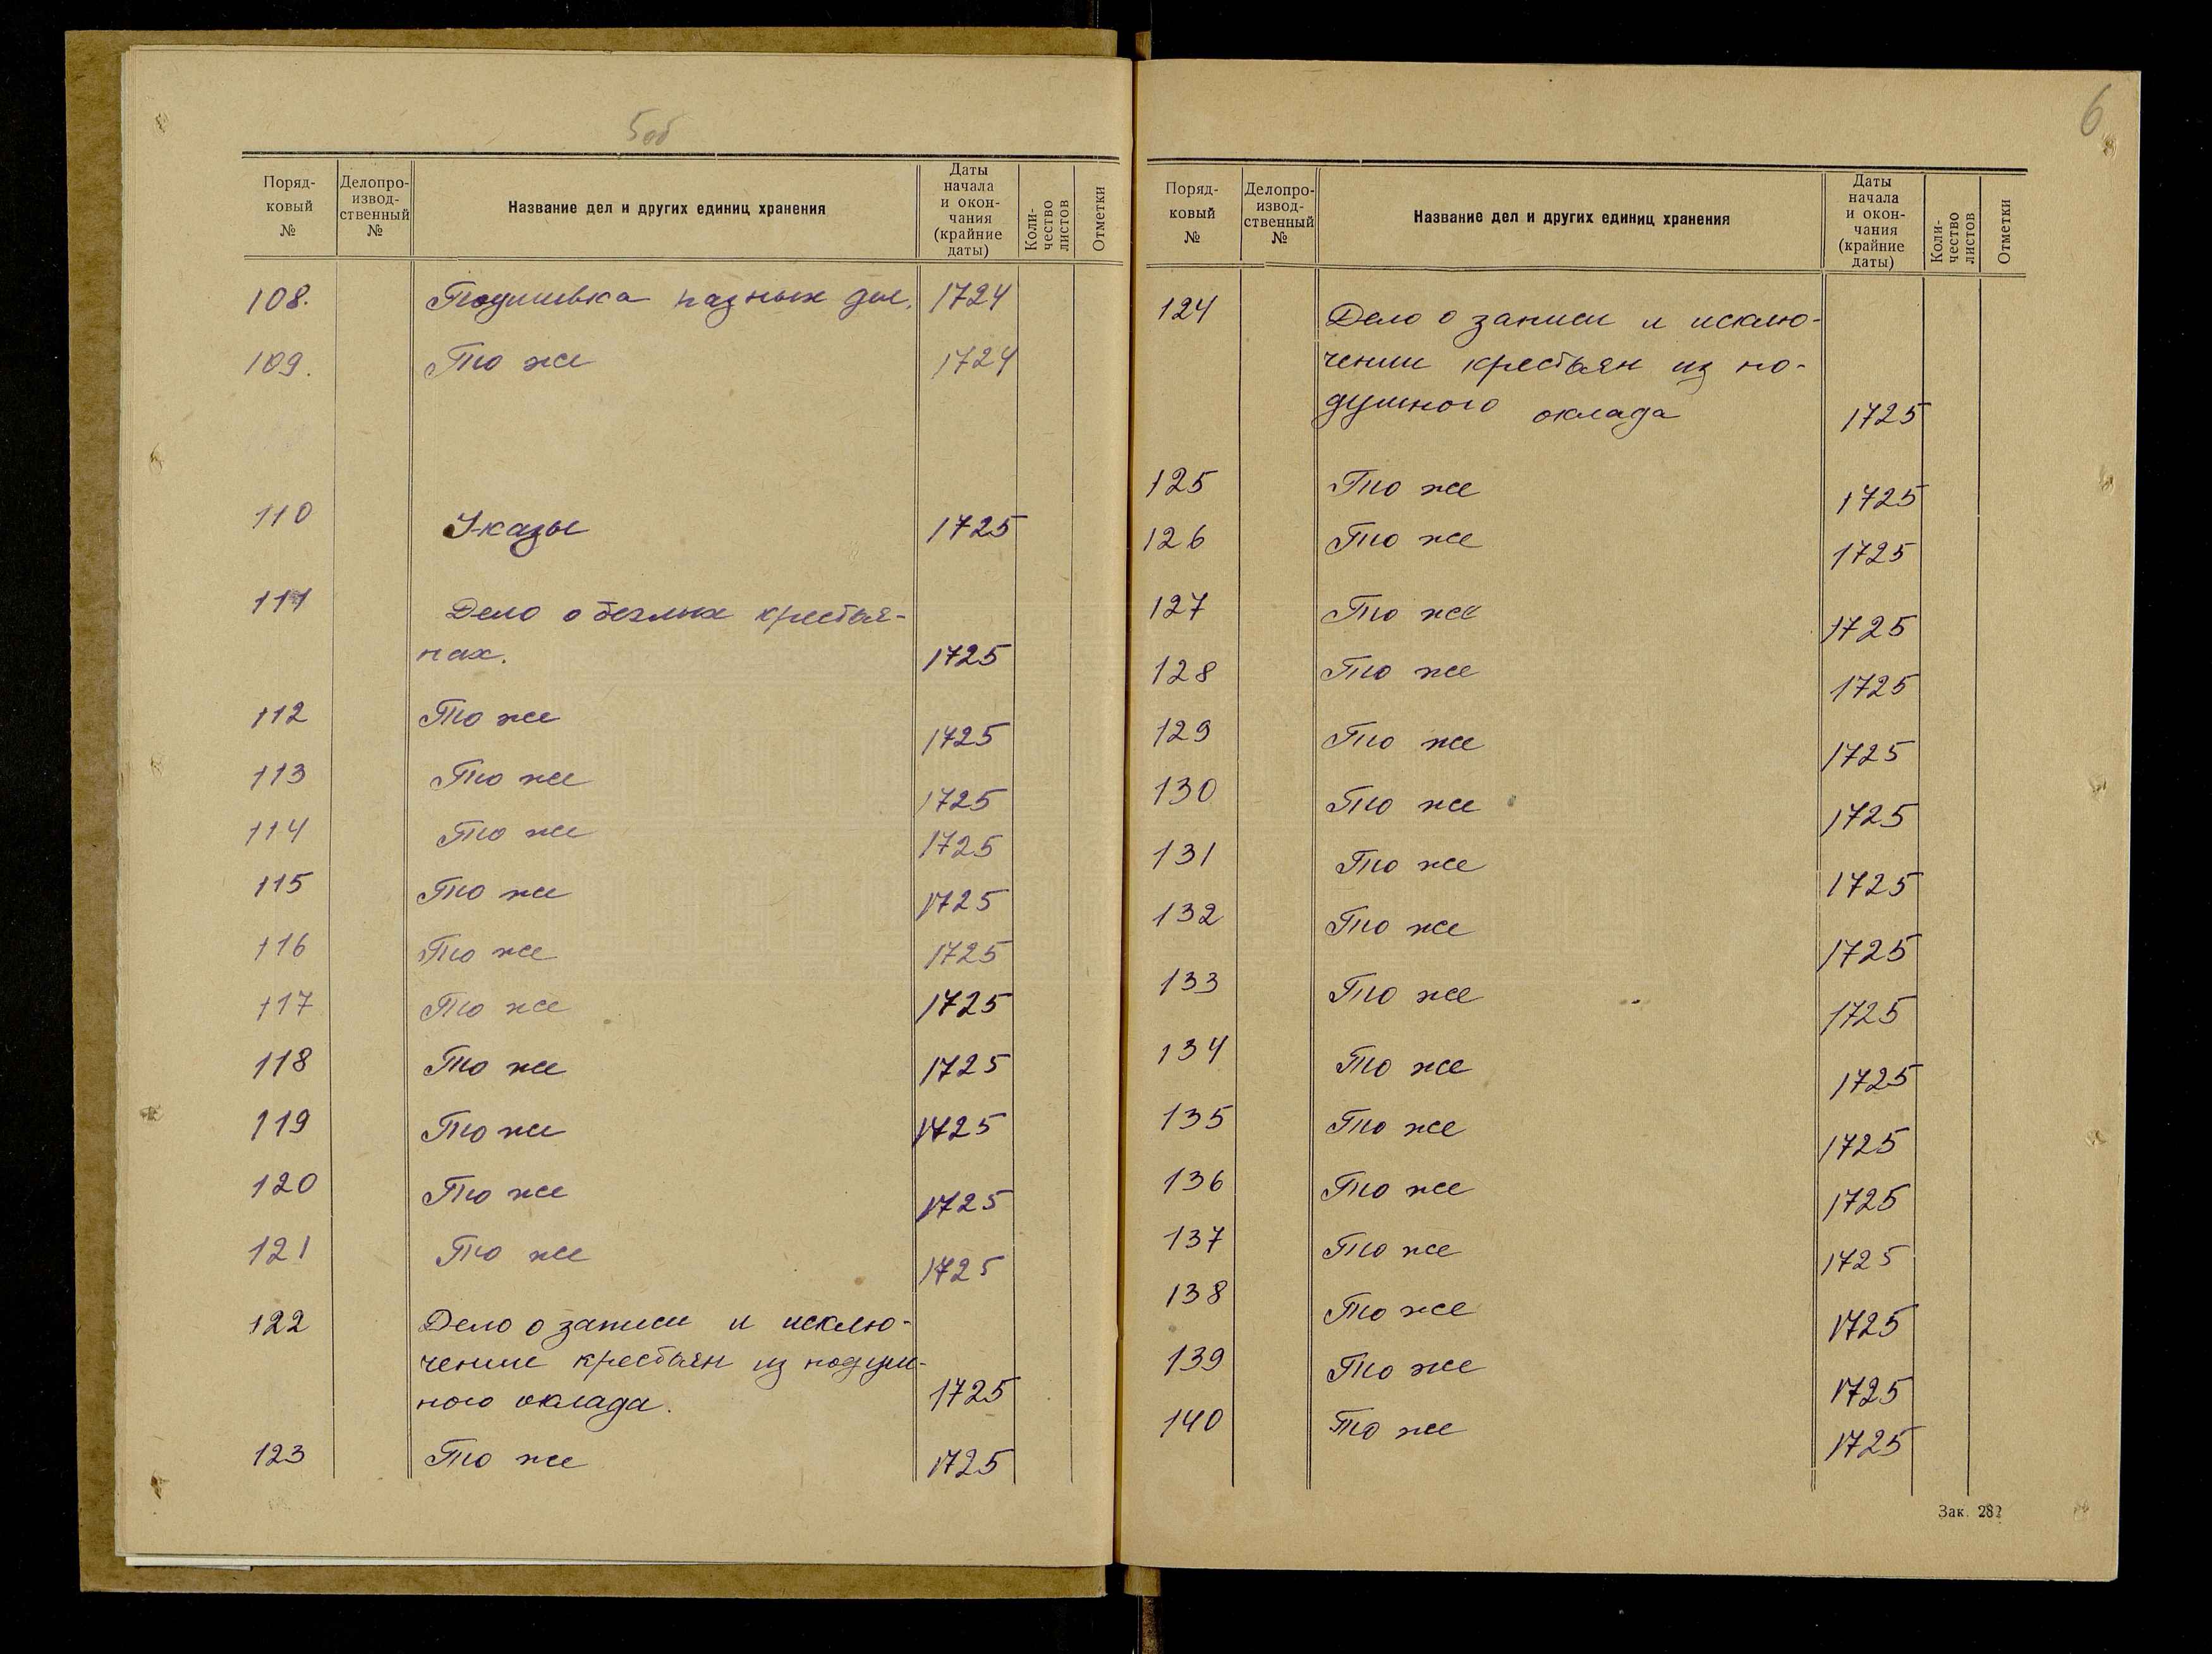 5об
Поряд-
ковый
№
Делопро-
извод-
ственный
№
Название дел и других единиц хранения
Даты
начала
и окон-
чания
(крайние
даты)
Коли-
чество
листов
Отметки
108. Подшивка разных дел. 1724
109. То же 1724
110 Указы 1725
111 Дело о беглых крестья-
нах. 1725
112 То же 1725
113 То же 1725
114 То же 1725
115 То же 1725
116 То же 1725
117 То же 1725
118 То же 1725
119 То же 1725
120 То же 1725
121 То же 1725
122 Дело о записи и исклю-
чении крестьян из подуш-
ного оклада. 1725
123 То же 1725
6
Поряд-
ковый
№
Делопро-
извод-
ственный
№
Название дел и других единиц хранения
Даты
начала
и окон-
чания
(крайние
даты)
Коли-
чество
листов
Отметки
124 Дело о записи и исклю-
чении крестьян из по-
душного оклада 1725
125 То же 1725
126 То же 1725
127 То же 1725
128 То же 1725
129 То же 1725
130 То же 1725
131 То же 1725
132 То же 1725
133 То же 1725
134 То же 1725
135 То же 1725
136 То же 1725
137 То же 1725
138 То же 1725
139 То же 1725
140 То же 1725
Зак. 282